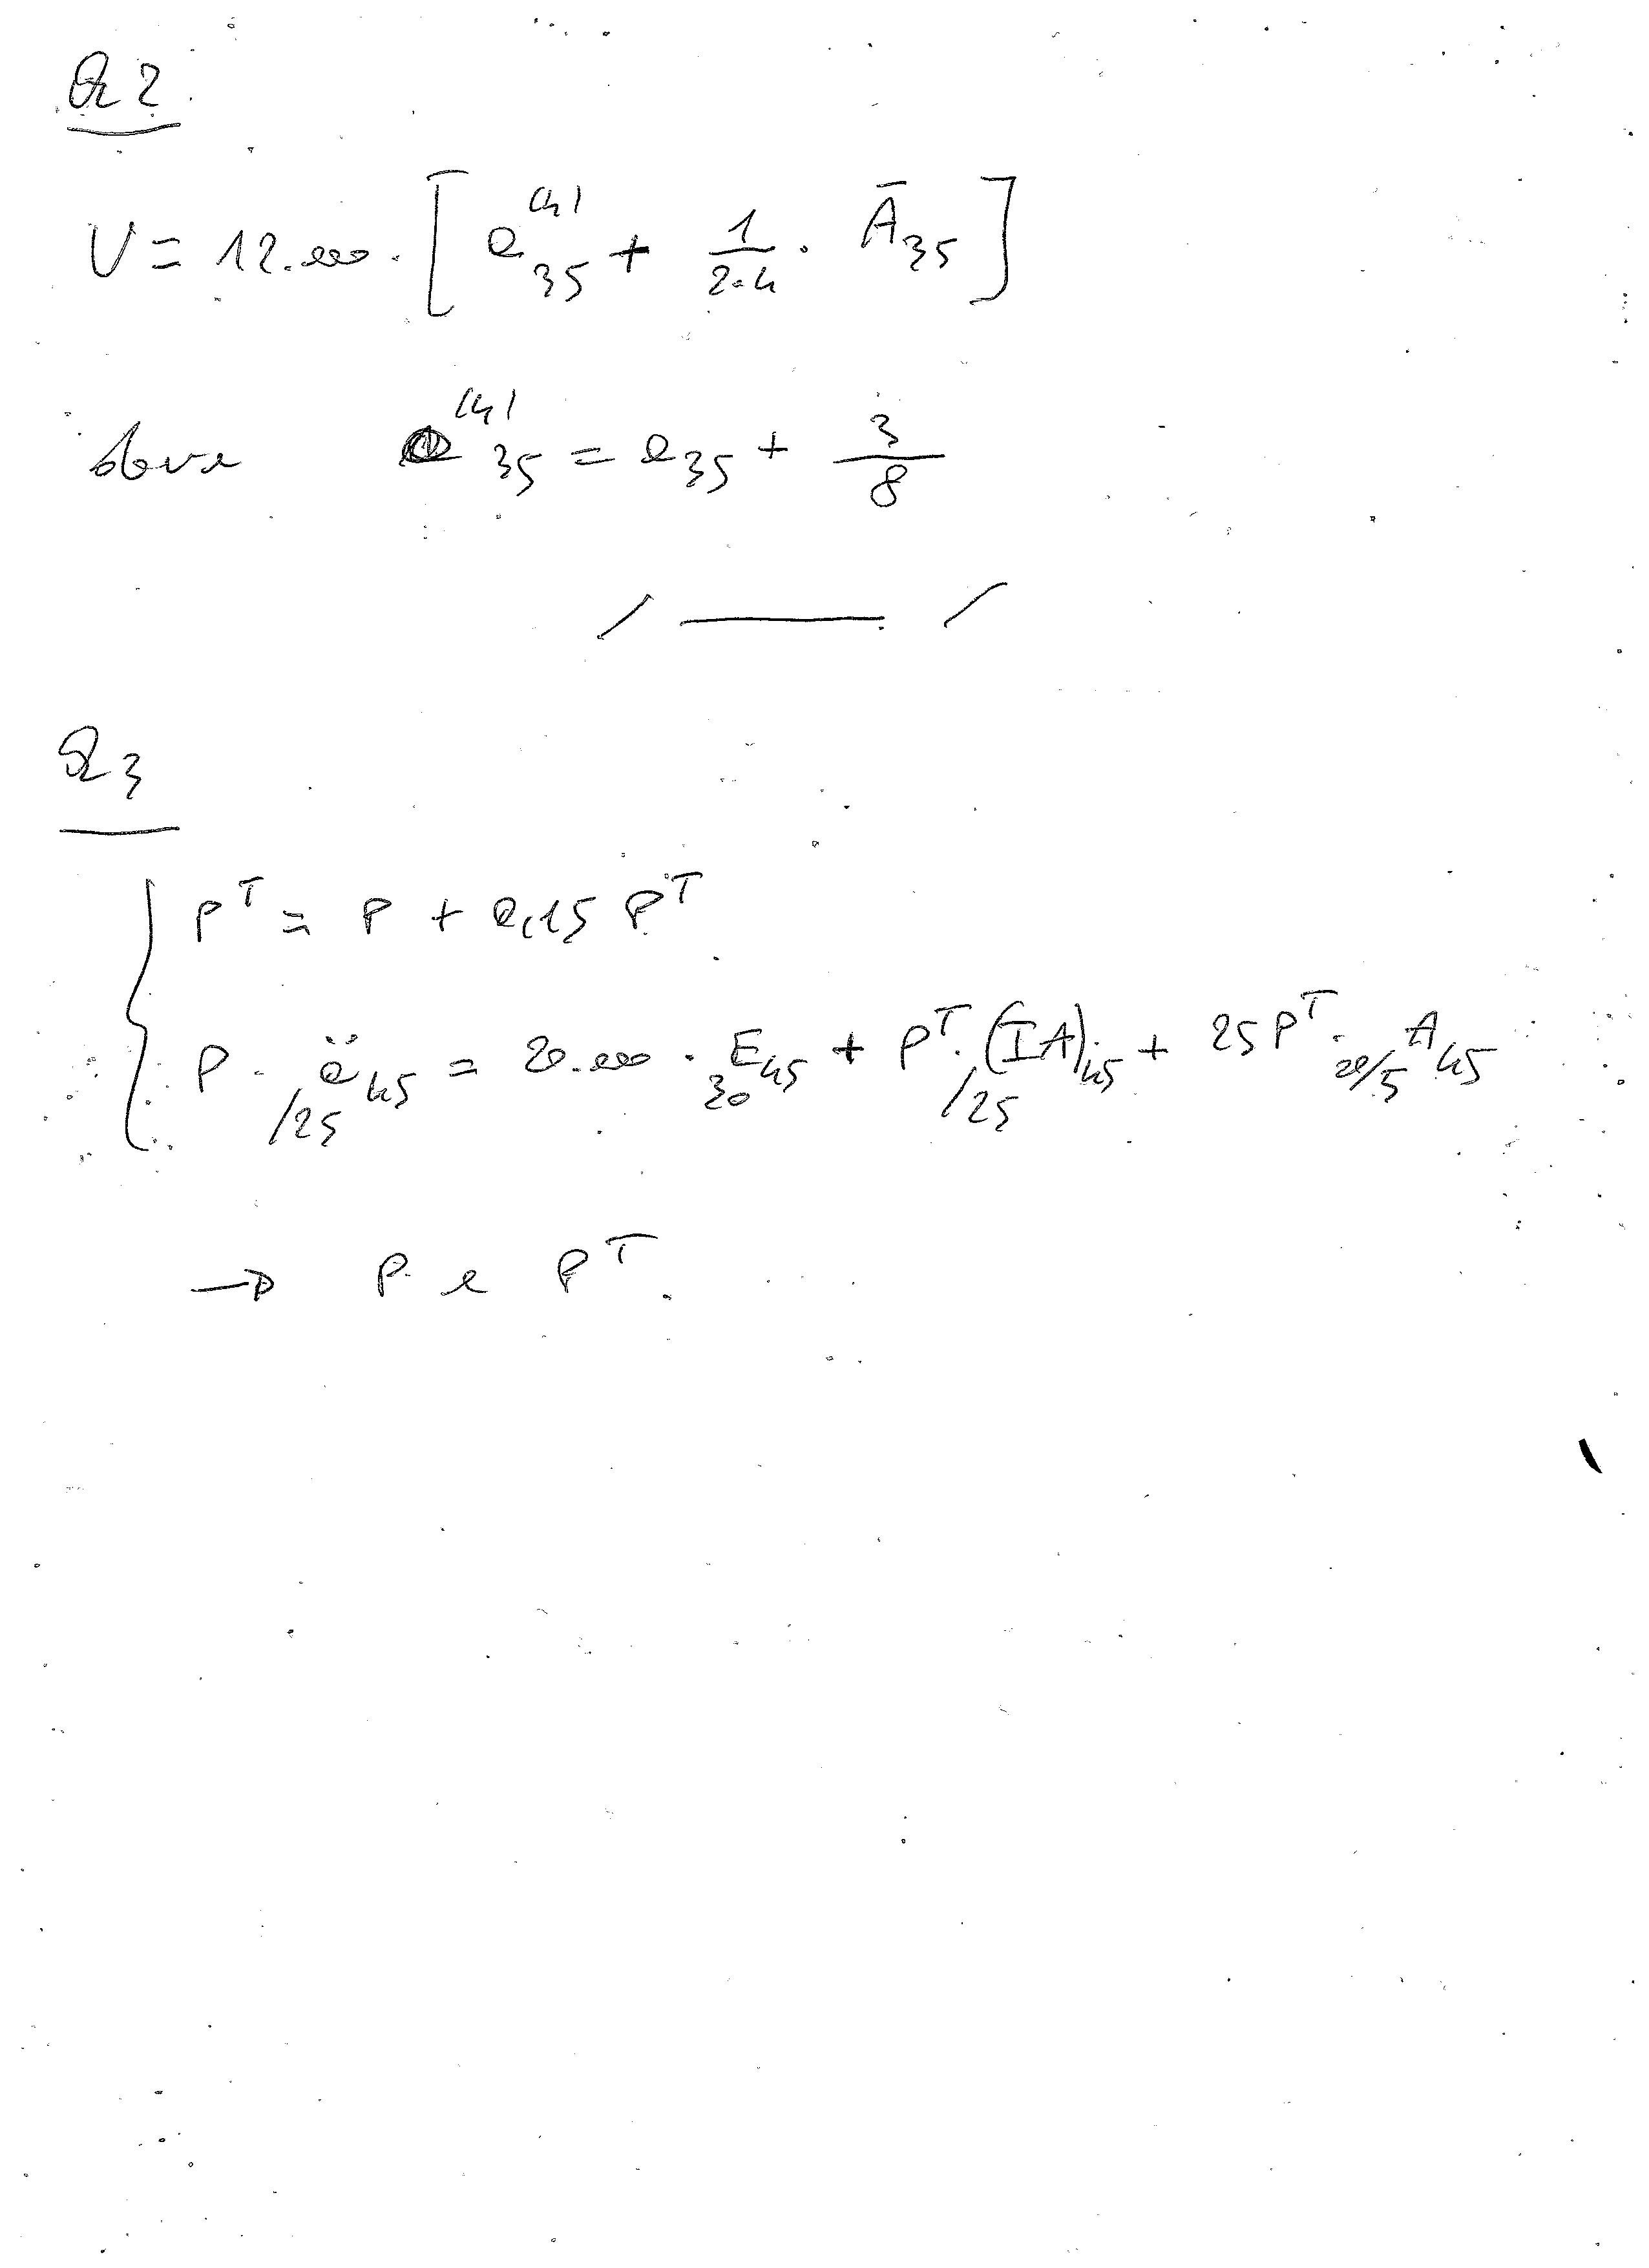 Q2
V = 12.000 · [ a₃₅⁽⁴⁾ + 1/(2·4) · Ā₃₅ ]
dove a₃₅⁽⁴⁾ = a₃₅ + 3/8
Q3
Pᵀ = P + 0,15 Pᵀ
P · /25 ä45 = 20.000 · 30E45 + Pᵀ · /25 (IA)45 + 25 Pᵀ · 20/5 A45
→ P e Pᵀ